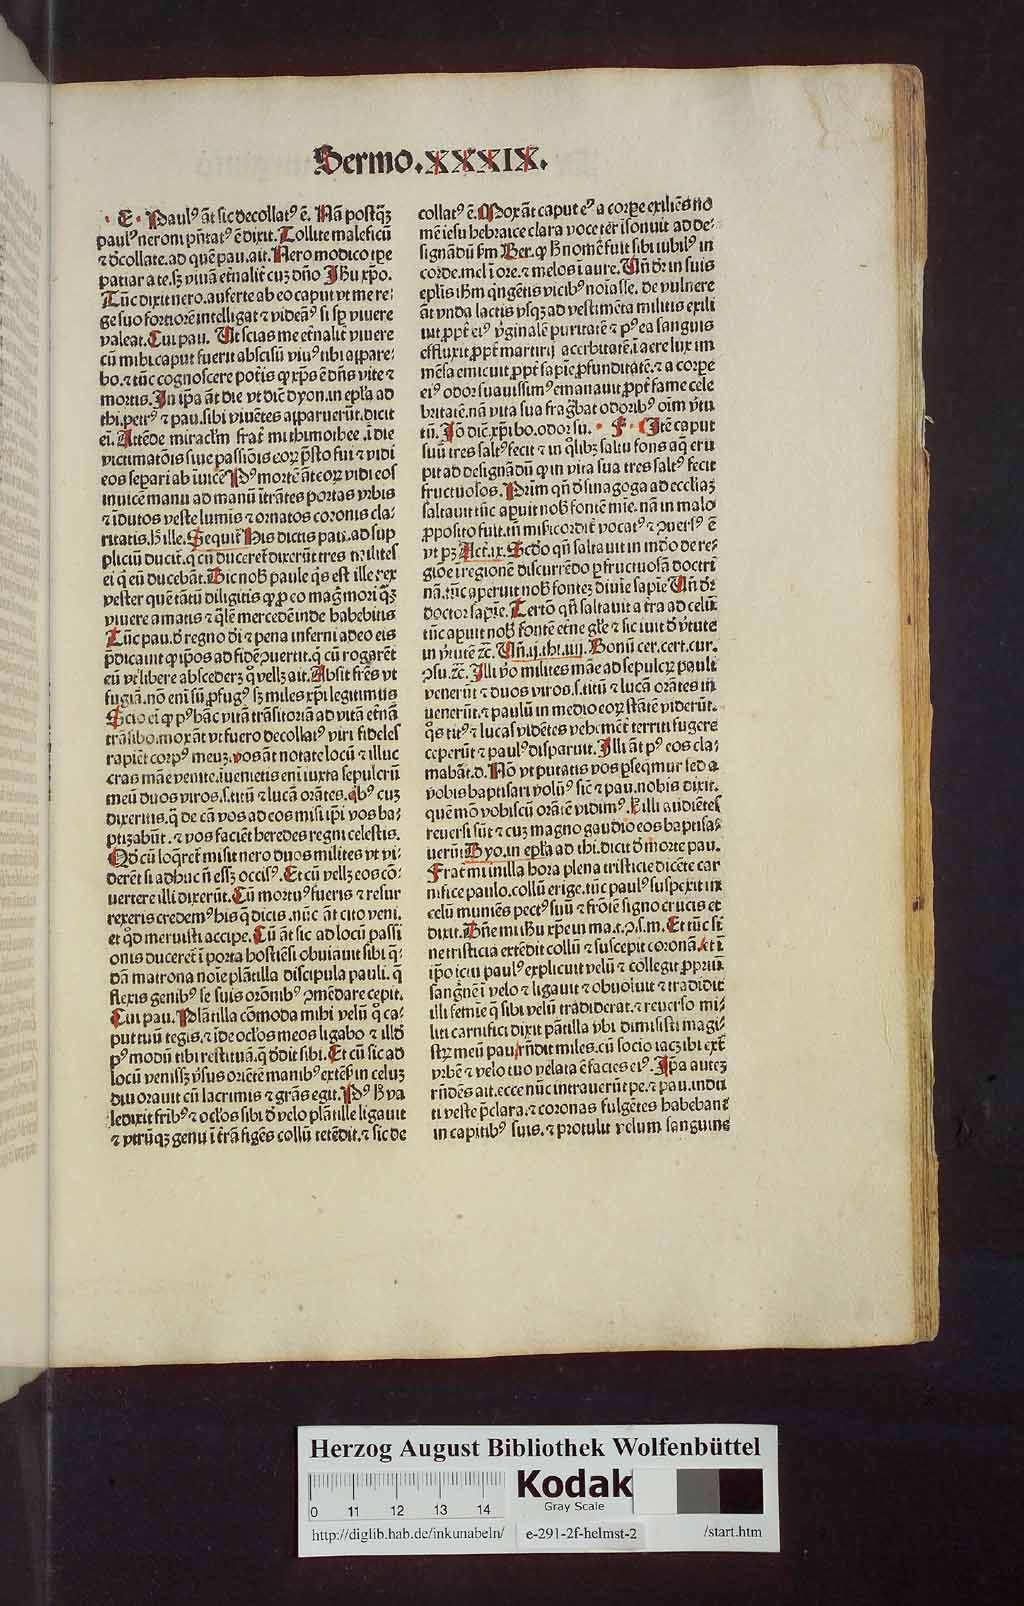 Sermo.XXXIX.
·E· Paulꝰ āt sic decollatꝰ ē. Nā postqꝫ
paulꝰ neroni pn̄tatꝰ ē dixit. Tollite maleficū
⁊ d̄collate. ad quē pau. ait. Nero modico tp̄e
patiar a te. sꝫ viuā etn̄alit̄ cuꝫ dn̄o Jh̄u xp̄o.
Tūc dixit nero. auferte ab eo caput vt me re⸗
ge suo fortiorē intelligat ⁊ videā si sꝑ viuere
valeat. Cui pau. Ut scias me etn̄alit̄ viuere
cū mihi caput fuerit abscisū viuꝰ tibi appare⸗
bo. ⁊ tūc cognoscere pot̄is ꝙ xp̄s ē dn̄s vite ⁊
mortis. In ip̄a āt die vt dic̄ dyon. in epl̄a ad
thi. petrꝰ ⁊ pau. sibi viuētes apparuerūt. dicit
ei. Attēde miracl̄m frat̄ mi thimothee. ī die
victimatōis siue passiōis eoꝝ p̄sto fui ⁊ vidi
eos separi ab īuicē Pꝰ mortē āt eoꝝ vidi eos
inuicē manu ad manū ītrātes portas vrbis
⁊ īdutos veste lumīs ⁊ ornatos coronis cla⸗
ritatis. h̄ ille. Sequit̄ His dictis pau. ad sup
pliciū ducit̄. q̄ cū duceret̄ dixerūt tres milites
ei q̄ eū ducebāt. Dic nob̄ paule q̄s est ille rex
vester quē tātū diligitis ꝙ ꝓ eo mag̃ mori qꝫ
viuere amatis ⁊ q̄lē mercedē inde habebitis
Tūc pau. d̄ regno dī ⁊ pena inferni adeo eis
p̄dicauit ꝙ ip̄os ad fidē ꝯuertit. q̄ cū rogarēt
eū vt libere abscederꝫ q̄ vellꝫ ait. Absit fr̄es vt
fugiā. nō eni sū ꝓfugꝰ sꝫ miles xp̄i legitimus
Scio ei ꝙ pꝰ hāc vitā trāsitoriā ad vitā etn̄ā
trāsibo. mox āt vt fuero decollatꝰ viri fideles
rapiēt corpꝰ meuꝫ. vos āt notate locū ⁊ illuc
cras māe venite. īuenietis eni iuxta sepulcrū
meū duos viros. s. titū ⁊ lucā orātes. qb̄ꝰ cuꝫ
dixeritis. q̄ de cā vos ad eos misi ip̄i vos ba⸗
ptizabūt. ⁊ vos faciēt heredes regni celestis.
Qd̄ cū loq̄ret̄ misit nero duos milites vt vi⸗
derēt si adhuc n̄ essꝫ occisꝰ. Et cū vellꝫ eos cō⸗
uertere illi dixerūt. Cū mortuꝰ fueris ⁊ resur
rexeris credemꝰ his q̄ dicis. nūc āt cito veni.
et qd̄ meruisti accipe. Cū āt sic ad locū passi
onis duceret̄ ī porta hostiēsi obuiauit sibi q̄⸗
dā matrona noīe plātilla discipula pauli. q̄
flexis genibꝰ se suis orōnibꝰ ꝯmēdare cepit.
Cui pau. Plātilla cōmoda mihi velū qͦ ca⸗
put tuū tegis. ⁊ īde ocl̄os meos ligabo ⁊ illd̄
pꝰ modū tibi restituā. q̄ d̄dit sibi. Et cū sic ad
locū venissꝫ v̄sus oriētē manibꝰ extēs̄ in celuꝫ
diu orauit cū lacrimis ⁊ gr̄as egit. Pꝰ h̄ va
ledixit frībꝰ ⁊ ocl̄os sibi d̄ velo plātille ligauit
⁊ vtrūqꝫ genu ī tr̄a figēs collū tetēdit. ⁊ sic de
collatꝰ ē. Mox āt caput eꝰ a corꝑe exiliēs no
mē iesu hebraice clara voce ter īsonuit ad de⸗
signādū sm̄ Ber. ꝙ h̄ nomē fuit sibi iubilꝰ in
corde. mel ī ore. ⁊ melos ī aure. Un̄ dr̄ in suis
epl̄is ih̄m qn̄gētis vicibꝰ noīasse. de vulnere
āt vnda lactis vsqꝫ ad vestimēta militis exili
uit. ꝓpt̄ eiꝰ v̄ginalē puritatē ⁊ pꝰ ea sanguis
effluxit. ꝓpt̄ martirij acerbitatē. ī aere lux im
mēsa emicuit. ꝓpt̄ sapīe ꝓfunditatē. ⁊ a corꝑe
eiꝰ odor suauissimꝰ emanauit. ꝓpt̄ fame cele
britatē. nā vita sua frag̃bat odoribꝰ oīm v̄tu
tū. Iō dic̄. xp̄i bo. odor su. ·F· Itē caput
suū tres saltꝰ fecit ⁊ in qͦlibꝫ saltu fons aq̄ eru
pit ad designādū ꝙ in vita sua tres saltꝰ fecit
fructuosos. Prim̄ qn̄ d̄ sinagoga ad eccl̄iaꝫ
saltauit tūc aꝑuit nob̄ fontē mīe. nā in malo
ꝓposito fuit. in misericordit̄ vocatꝰ ⁊ ꝯuersꝰ ē
vt pꝫ Act̄. ix. Scd̄o qn̄ saltauit in mūdo de re⸗
giōe ī regionē discurrēdo ꝑ fructuosā doctri
nā. tūc aꝑeruit nob̄ fontez diuīe sapīe Un̄ dr̄
doctor sapīe. Tertō qn̄ saltauit a tr̄a ad celū
tūc aꝑuit nob̄ fontē etn̄e gl̄ie ⁊ sic iuit d̄ v̄tute
in v̄tutē ⁊c̄. Un̄. ij. thi. iiij. Bonū cer. cert. cur.
ꝯsu. ⁊c̄. Illi v̄o milites māe ad sepulcꝝ pauli
venerūt ⁊ duos viros. s. titū ⁊ lucā orātes in
uenerūt. ⁊ paulū in medio eoꝝ stātē viderūt.
qͦs titꝰ ⁊ lucas vidētes vehemēt̄ territi fugere
ceperūt ⁊ paulꝰ disparuit. Illi āt pꝰ eos cla⸗
mabāt. d. Nō vt putatis vos ꝑseqmur sed a
vobis baptisari volumꝰ sic ⁊ pau. nobis dixit.
quē mō vobiscū orātē vidimꝰ. h̄ illi audiētes
reuersi sūt ⁊ cuꝫ magno gaudio eos baptisa⸗
uerūt Dyo. in epl̄a ad thi. dicit d̄ morte pau.
Frat̄ mi in illa hora plena tristicie dicēte car
nifice paulo. collū erige. tūc paulꝰ suspexit in
celū muniēs pectꝰ suū ⁊ frōtē signo crucis et
dixit. Dn̄e mi ih̄u xp̄e in ma. t. ꝯ. s. m. Et tūc si
ne tristicia extēdit collū ⁊ suscepit coronā. et ī
ip̄o ictu paulꝰ explicuit velū ⁊ collegit ꝓpriū
sangͥnē ī velo ⁊ ligauit ⁊ obuoluit ⁊ tradidit
illi femīe q̄ sibi velū tradiderat. ⁊ reuerso mi⸗
liti carnifici dixit pātilla vbi dimisisti magi⸗
stꝝ meū pau. rn̄dit miles. cū socio iacꝫ ibi ext̄
vrbē ⁊ velo tuo velata ē facies eiꝰ. Ip̄a auteꝫ
rn̄dēs ait. ecce nūc intrauerūt pe. ⁊ pau. indu
ti veste p̄clara. ⁊ coronas fulgētes habebant
in capitibꝰ suis. ⁊ protulit velum sanguine
Herzog August Bibliothek Wolfenbüttel
Kodak
Gray Scale
0 11 12 13 14
http://diglib.hab.de/inkunabeln/ e-291-2f-helmst-2 /start.htm